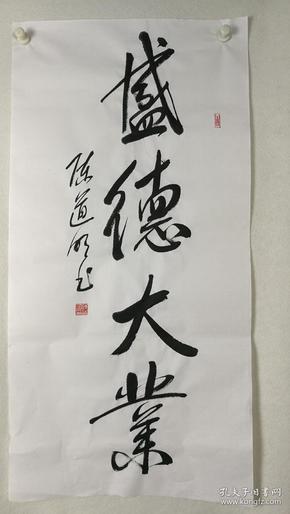 盛德大業
陈道明书
孔夫子旧书网